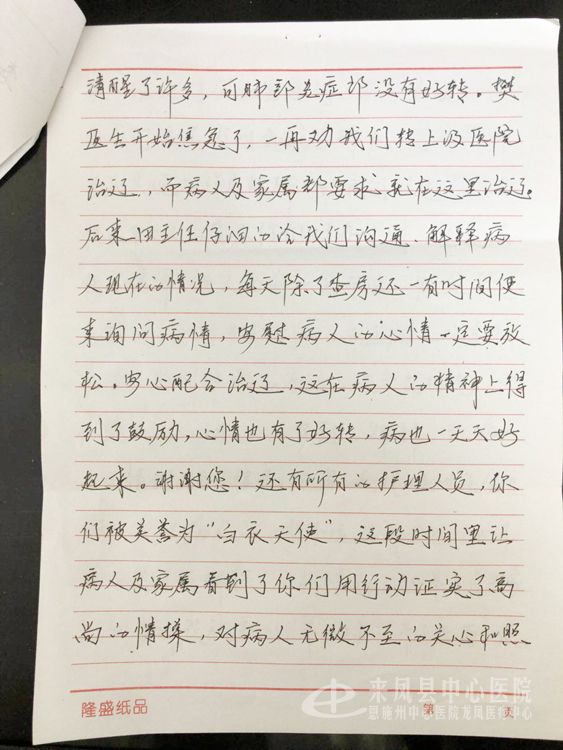 清醒了许多，可肺部炎症却没有好转。樊
医生开始焦急了，一再劝我们转上级医院
治疗，而病人及家属都要求就在这里治疗。
后来田主任仔细的给我们沟通、解释病
人现在的情况，每天除了查房还一有时间便
来询问病情，安慰病人的心情一定要放
松。安心配合治疗，这在病人的精神上得
到了鼓励，心情也有了好转，病也一天天好
起来。谢谢您！还有所有的护理人员，你
们被美誉为“白衣天使”，这段时间里让
病人及家属看到了你们用行动证实了高
尚的情操，对病人无微不至的关心和照
隆盛纸品 第 页
来凤县中心医院
恩施州中心医院龙凤医疗中心